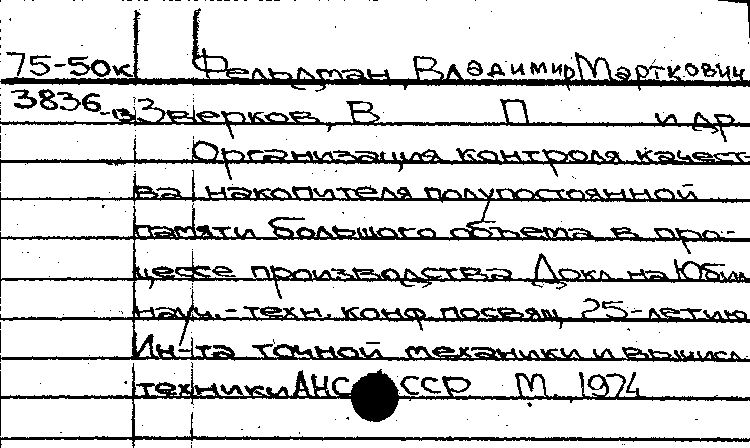 75-50к Фельдман, Владимир Марткович
3836-13 Зверков, В П и др
Организация контроля качест-
ва накопителя полупостоянной
памяти большого объема в про-
цессе производства Докл на Юбил
науч.-техн. конф. посвящ. 25-летию
Ин-та точной механики и вычисл
техники АН СССР М. 1974